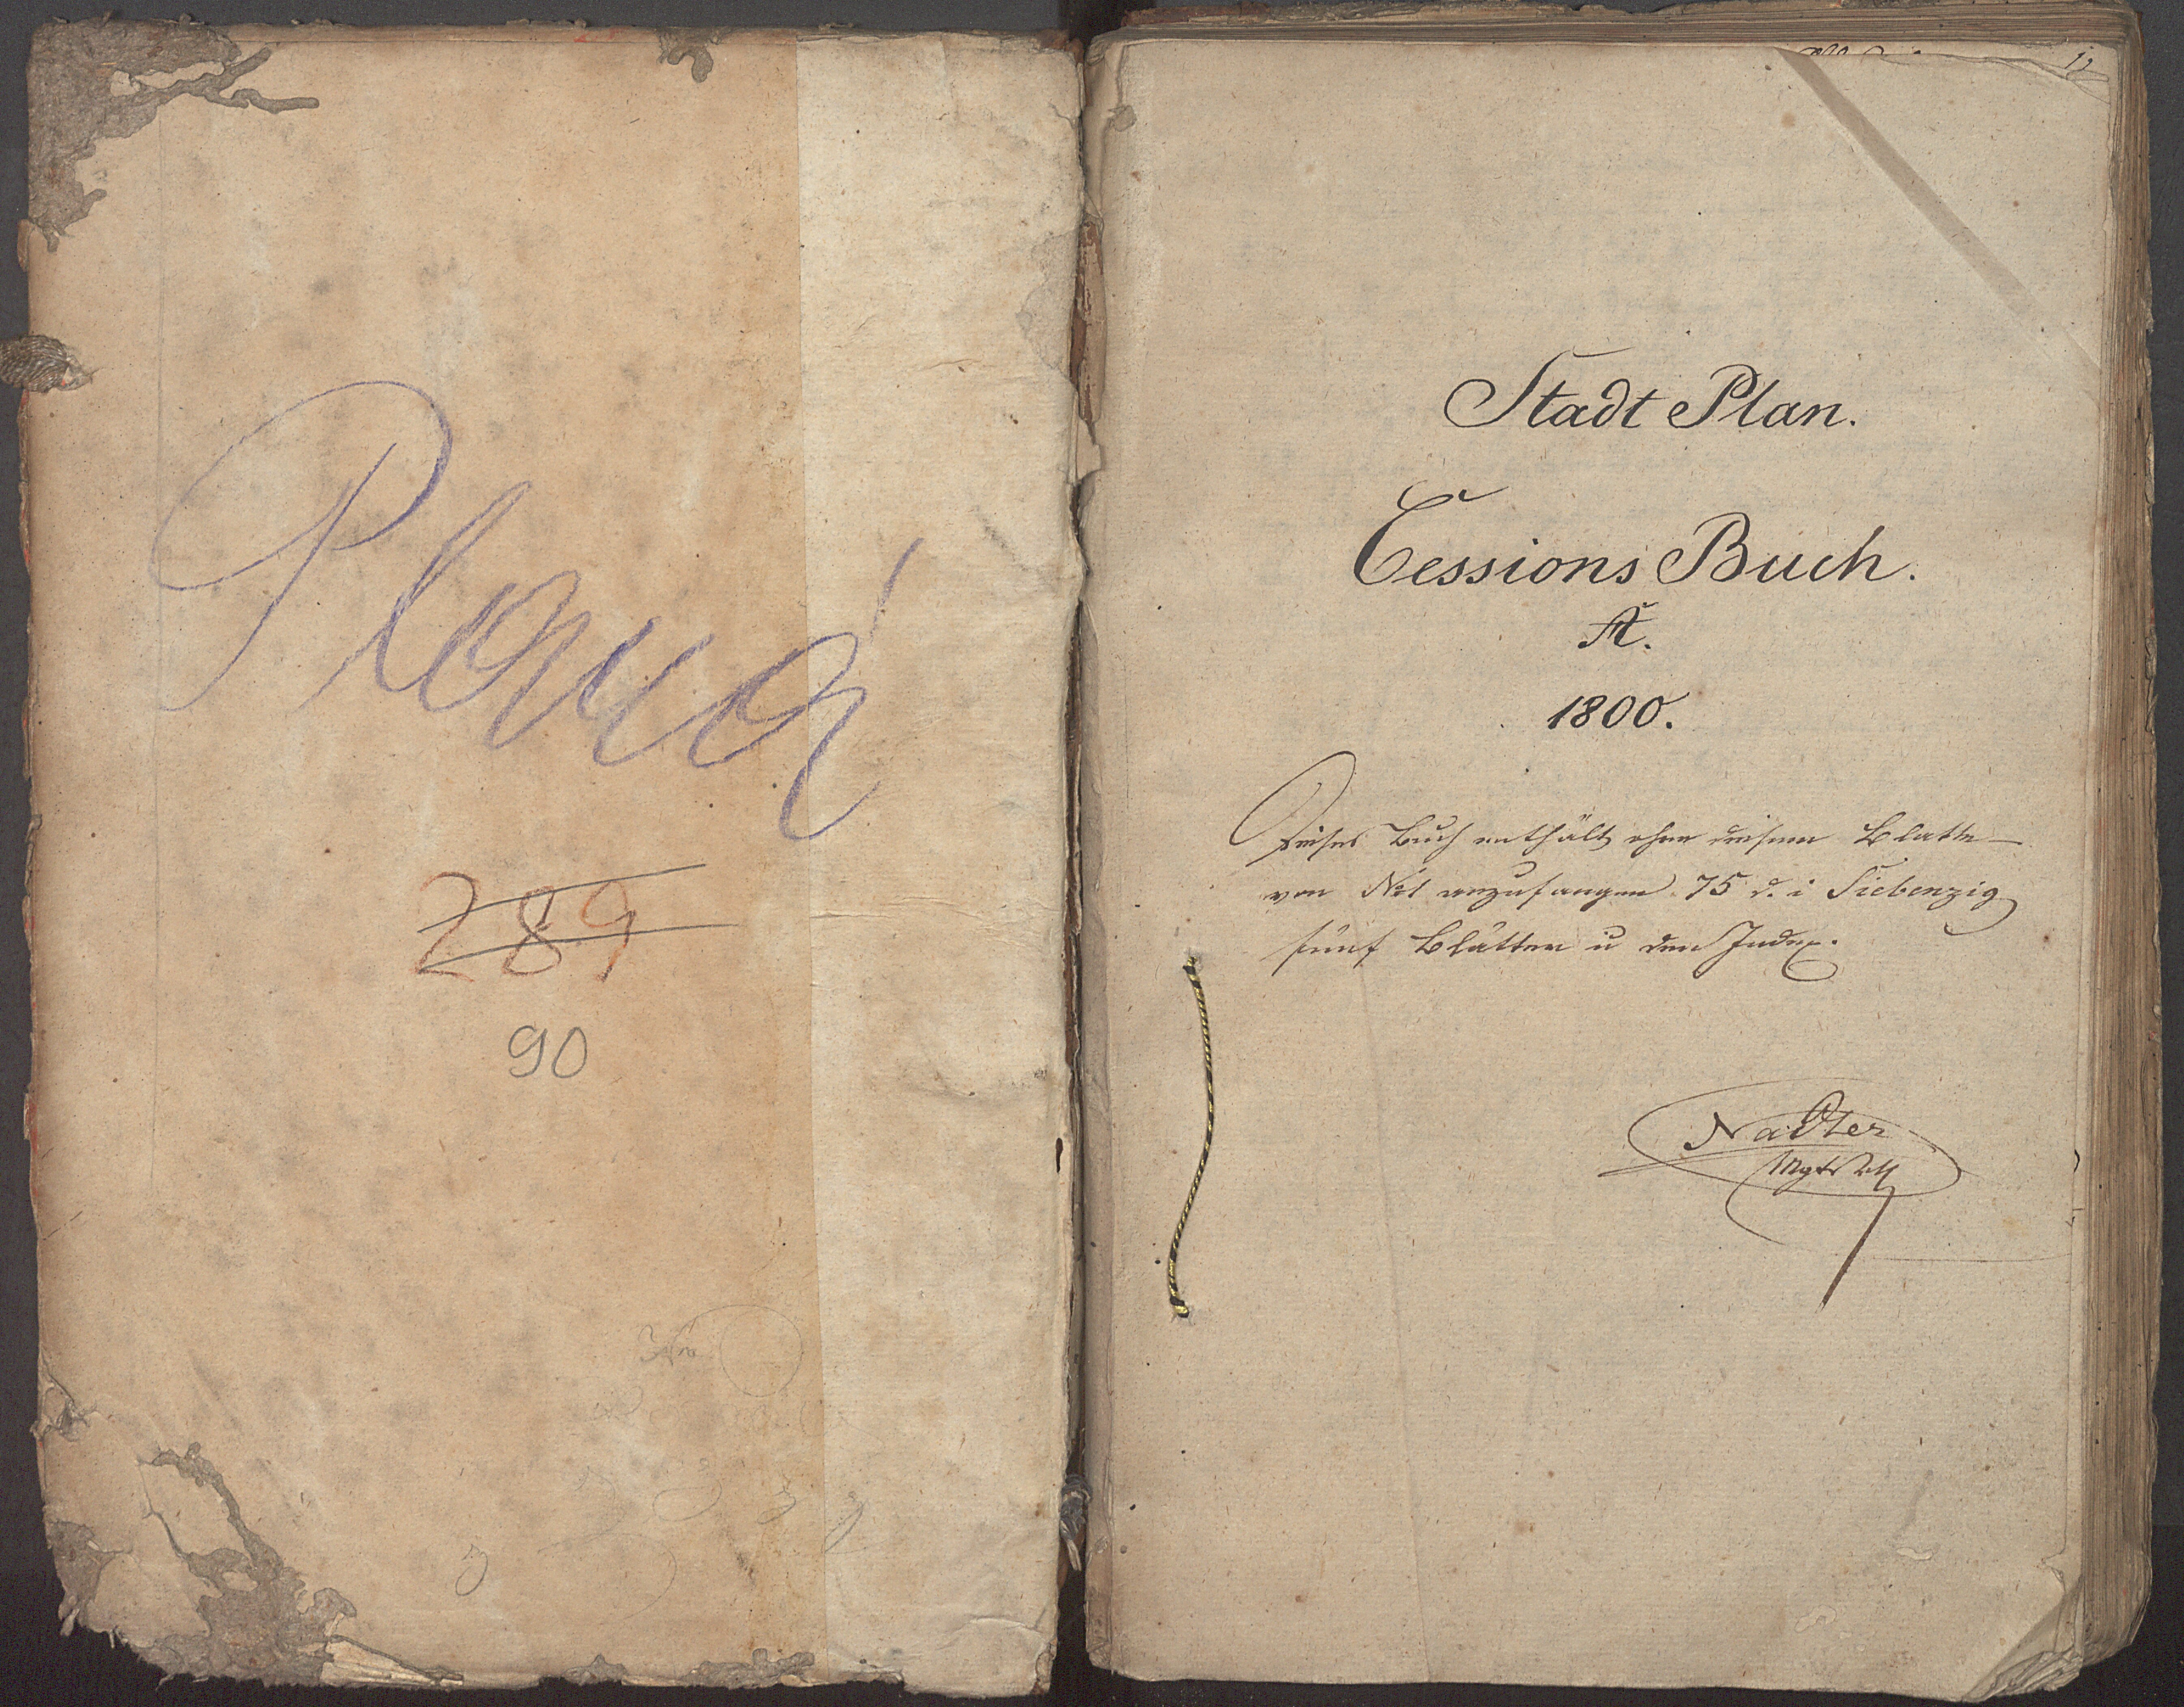 Planá
289
90
Stadt Plan.
Cessions Buch.
A.
1800.
Dieses Buch enthält ohne diesem Blatte
von No 1 anzufangen 75 d. i Siebenzig
fünf Blätter u den Index.
Nadler